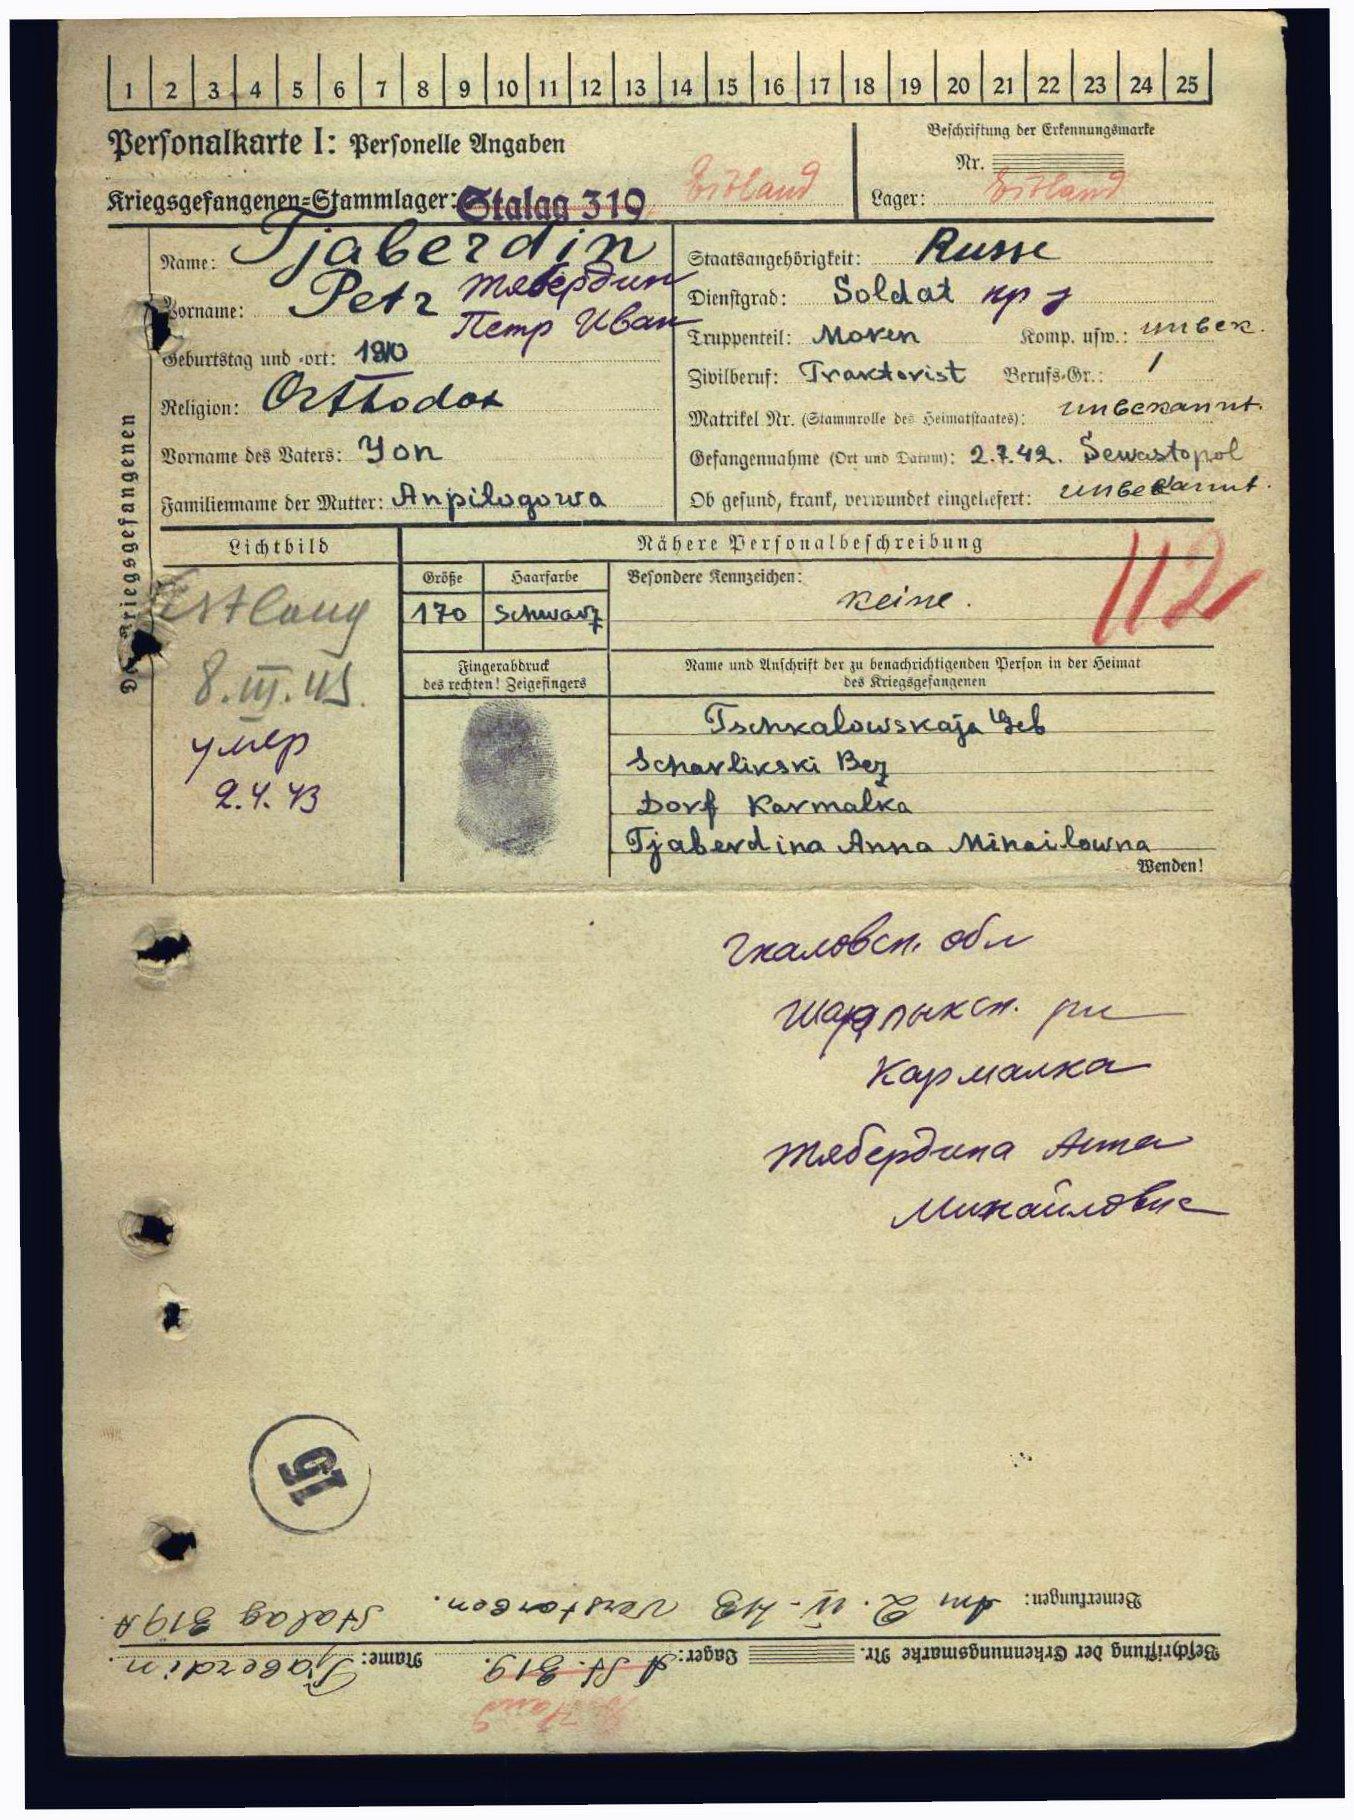 1 2 3 4 5 6 7 8 9 10 11 12 13 14 15 16 17 18 19 20 21 22 23 24 25
Personalkarte I: Personelle Angaben
Beschriftung der Erkennungsmarke
Nr.
Kriegsgefangenen-Stammlager: Stalag 319
Lager:
Des Kriegsgefangenen
Name: Tjaberdin
Vorname: Petr Тябердин
Петр Иван
Geburtstag und -ort: 1910
Religion: Orthodox
Vorname des Vaters: Yon
Familienname der Mutter: Anpilogowa
Staatsangehörigkeit: Russe
Dienstgrad: Soldat кр
Truppenteil: Komp. usw.: unbek.
Zivilberuf: Traktorist Berufs-Gr.: 1
Matrikel Nr. (Stammrolle des Heimatstaates): unbekannt.
Gefangennahme (Ort und Datum): 2.7.42. Sewastopol
Ob gesund, krank, verwundet eingeliefert: unbekannt.
Lichtbild
8.III.43.
умер
2.4.43
Nähere Personalbeschreibung
Größe Haarfarbe Besondere Kennzeichen:
170 Schwarz keine.
112
Fingerabdruck
des rechten! Zeigefingers
Name und Anschrift der zu benachrichtigenden Person in der Heimat
des Kriegsgefangenen
Tschkalowskaja Geb
Scharlikski Bez
Dorf Karmalka
Tjaberdina Anna Mihailowna
Wenden!
Чкаловск. обл
Шарлыкск. рн
Кармалка
Тябердина Анна
Михайловна
15
Bemerkungen: Am 2. IV. 43 verstorben. Stalag 319A.
Beschriftung der Erkennungsmarke Nr. Lager: 319. Name: Tjaberdin.